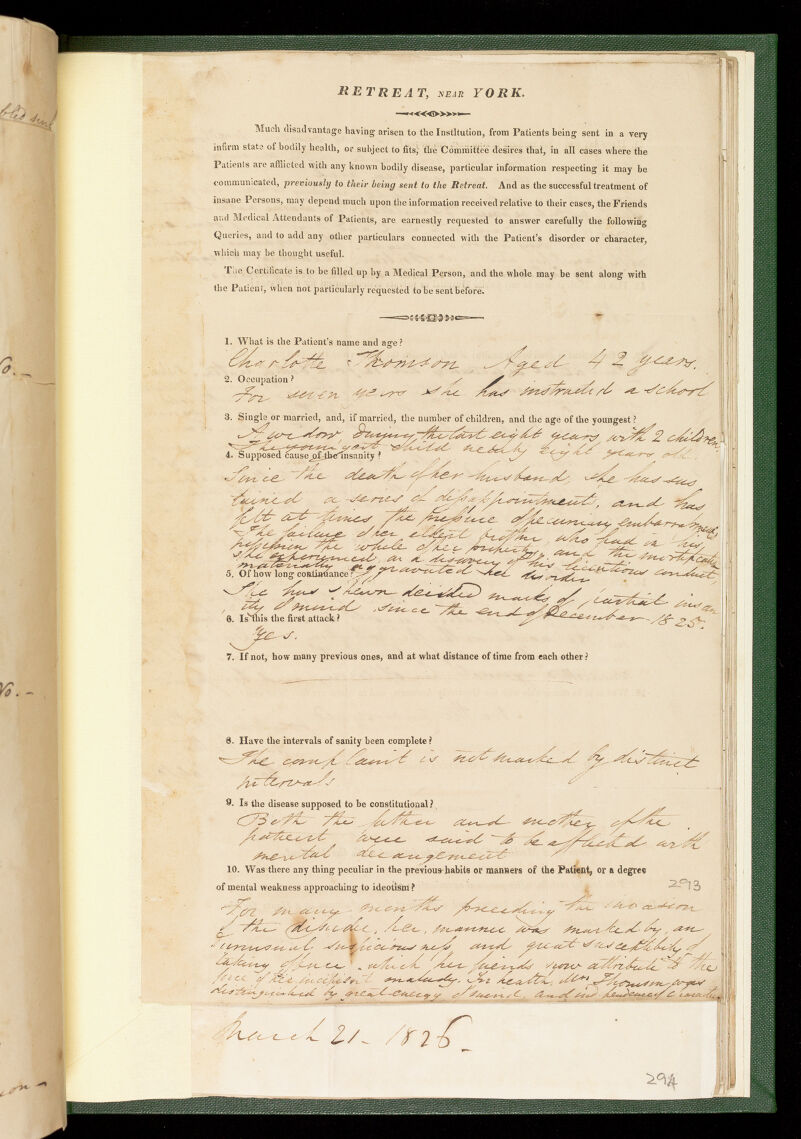 RETREAT, NEAR YORK.
Much disadvantage having arisen to the Institution, from Patients being sent in a very
infirm state of bodily health, or subject to fits, the Committee desires that, in all cases where the
Patients are afflicted with any known bodily disease, particular information respecting it may be
communicated, previously to their being sent to the Retreat. And as the successful treatment of
insane Persons, may depend much upon the information received relative to their cases, the Friends
and Medical Attendants of Patients, are earnestly requested to answer carefully the following
Queries, and to add any other particulars connected with the Patient's disorder or character,
which may be thought useful.
The Certificate is to be filled up by a Medical Person, and the whole may be sent along with
the Patient, when not particularly requested to be sent before.
1. What is the Patient's name and age?
Charlotte Thomson Aged 42 years.
2. Occupation?
For seven years she has instructed a school
3. Single or married, and, if married, the number of children, and the age of the youngest?
A widow, during the last eight years, with 2 children
The youngest child nearly eight years old.
4. Supposed cause of the insanity?
Since the death of her husband, she has sus
tained a series of disappointment, and has
felt at times the pressure of pecuniary embarrassment
The failure of her eldest brother, who had in his
possession the whole of her property, and the mortification
she experienced, on a discovery of his licentious conduct
materially aggravated her disorder
5. Of how long continuance?
She has shewn decided marks of partial insan
ity of mind since the end of December 1825.
6. Is this the first attack?
Yes.
7. If not, how many previous ones, and at what distance of time from each other?
8. Have the intervals of sanity been complete?
The complaint is not marked by distinct
intervals
9. Is the disease supposed to be constitutional?
Both the father and mother of the
patient were said to be affected with
mental derangement
10. Was there any thing peculiar in the previous habits or manners of the Patient, or a degree
of mental weakness approaching to ideotism?
293
For many months preceding the invasion
of the disorder, her manner was marked by an
unusual suspiciousness, and great susceptibility of
taking offence, which her friends now attribute to the
of the incipient malady. In health, Mrs Thomson was
distinguished by great energy of mind, and independence of character
March 21 - 1826 -
294
No. -